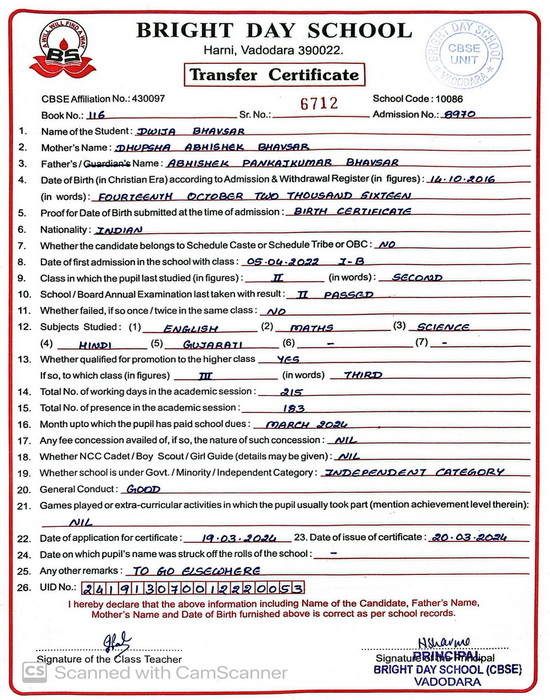 A WILL WILL FIND A WAY
BS
BRIGHT DAY SCHOOL
Harni, Vadodara 390022.
Transfer Certificate
BRIGHT DAY SCHOOL
CBSE
UNIT
VADODARA
CBSE Affiliation No.: 430097 School Code : 10086
Book No.: 116 Sr. No.: 6712 Admission No.: 8970
1. Name of the Student : DWIJA BHAVSAR
2. Mother's Name : DHUPSHA ABHISHEK BHAVSAR
3. Father's / Guardian's Name : ABHISHEK PANKAJKUMAR BHAVSAR
4. Date of Birth (in Christian Era) according to Admission & Withdrawal Register (in figures) : 14·10·2016
(in words) : FOURTEENTH OCTOBER TWO THOUSAND SIXTEEN
5. Proof for Date of Birth submitted at the time of admission : BIRTH CERTIFICATE
6. Nationality : INDIAN
7. Whether the candidate belongs to Schedule Caste or Schedule Tribe or OBC : NO
8. Date of first admission in the school with class : 05·04·2022 I-B
9. Class in which the pupil last studied (in figures) : II (in words) : SECOND
10. School / Board Annual Examination last taken with result : II PASSED
11. Whether failed, if so once / twice in the same class : NO
12. Subjects Studied : (1) ENGLISH (2) MATHS (3) SCIENCE
(4) HINDI (5) GUJARATI (6) - (7) -
13. Whether qualified for promotion to the higher class YES
If so, to which class (in figures) III (in words) THIRD
14. Total No. of working days in the academic session : 215
15. Total No. of presence in the academic session : 183
16. Month upto which the pupil has paid school dues : MARCH 2024
17. Any fee concession availed of, if so, the nature of such concession : NIL
18. Whether NCC Cadet / Boy Scout / Girl Guide (details may be given) : NIL
19. Whether school is under Govt. / Minority / Independent Category : INDEPENDENT CATEGORY
20. General Conduct : GOOD
21. Games played or extra-curricular activities in which the pupil usually took part (mention achievement level therein) :
NIL
22. Date of application for certificate : 19·03·2024 23. Date of issue of certificate : 20·03·2024
24. Date on which pupil's name was struck off the rolls of the school : -
25. Any other remarks : TO GO ELSEWHERE
26. UID No.: 241913070012220053
I hereby declare that the above information including Name of the Candidate, Father's Name,
Mother's Name and Date of Birth furnished above is correct as per school records.
Signature of the Class Teacher Signature of the Principal
PRINCIPAL
BRIGHT DAY SCHOOL (CBSE)
VADODARA
CS Scanned with CamScanner